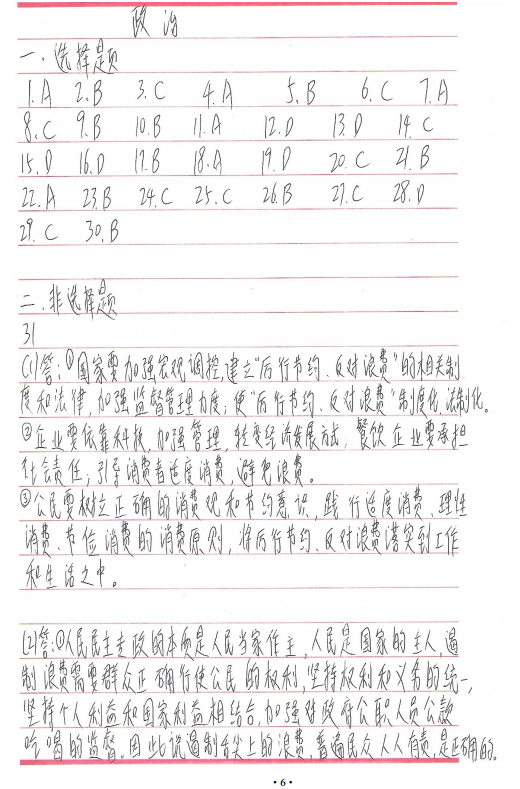 政治
一、选择题
1. A 2. B 3. C 4. A 5. B 6. C 7. A
8. C 9. B 10. B 11. A 12. D 13. D 14. C
15. D 16. D 17. B 18. A 19. D 20. C 21. B
22. A 23. B 24. C 25. C 26. B 27. C 28. D
29. C 30. B
二、非选择题
31
(1)答:①国家要加强宏观调控,建立"厉行节约、反对浪费"的相关制
度和法律,加强监督管理力度;使"厉行节约、反对浪费"制度化,法制化。
②企业要依靠科技,加强管理,转变经济发展方式,餐饮企业要承担
社会责任;引导消费者适度消费,避免浪费。
③公民要树立正确的消费观和节约意识,践行适度消费、理性
消费、节俭消费的消费原则,将厉行节约、反对浪费落实到工作
和生活之中。
(2)答:①人民民主专政的本质是人民当家作主,人民是国家的主人,遏
制浪费需要群众正确行使公民的权利,坚持权利和义务的统一,
坚持个人利益和国家利益相结合,加强对政府公职人员公款
吃喝的监督。因此说遏制舌尖上的浪费,普遍民众人人有责,是正确的。
·6·